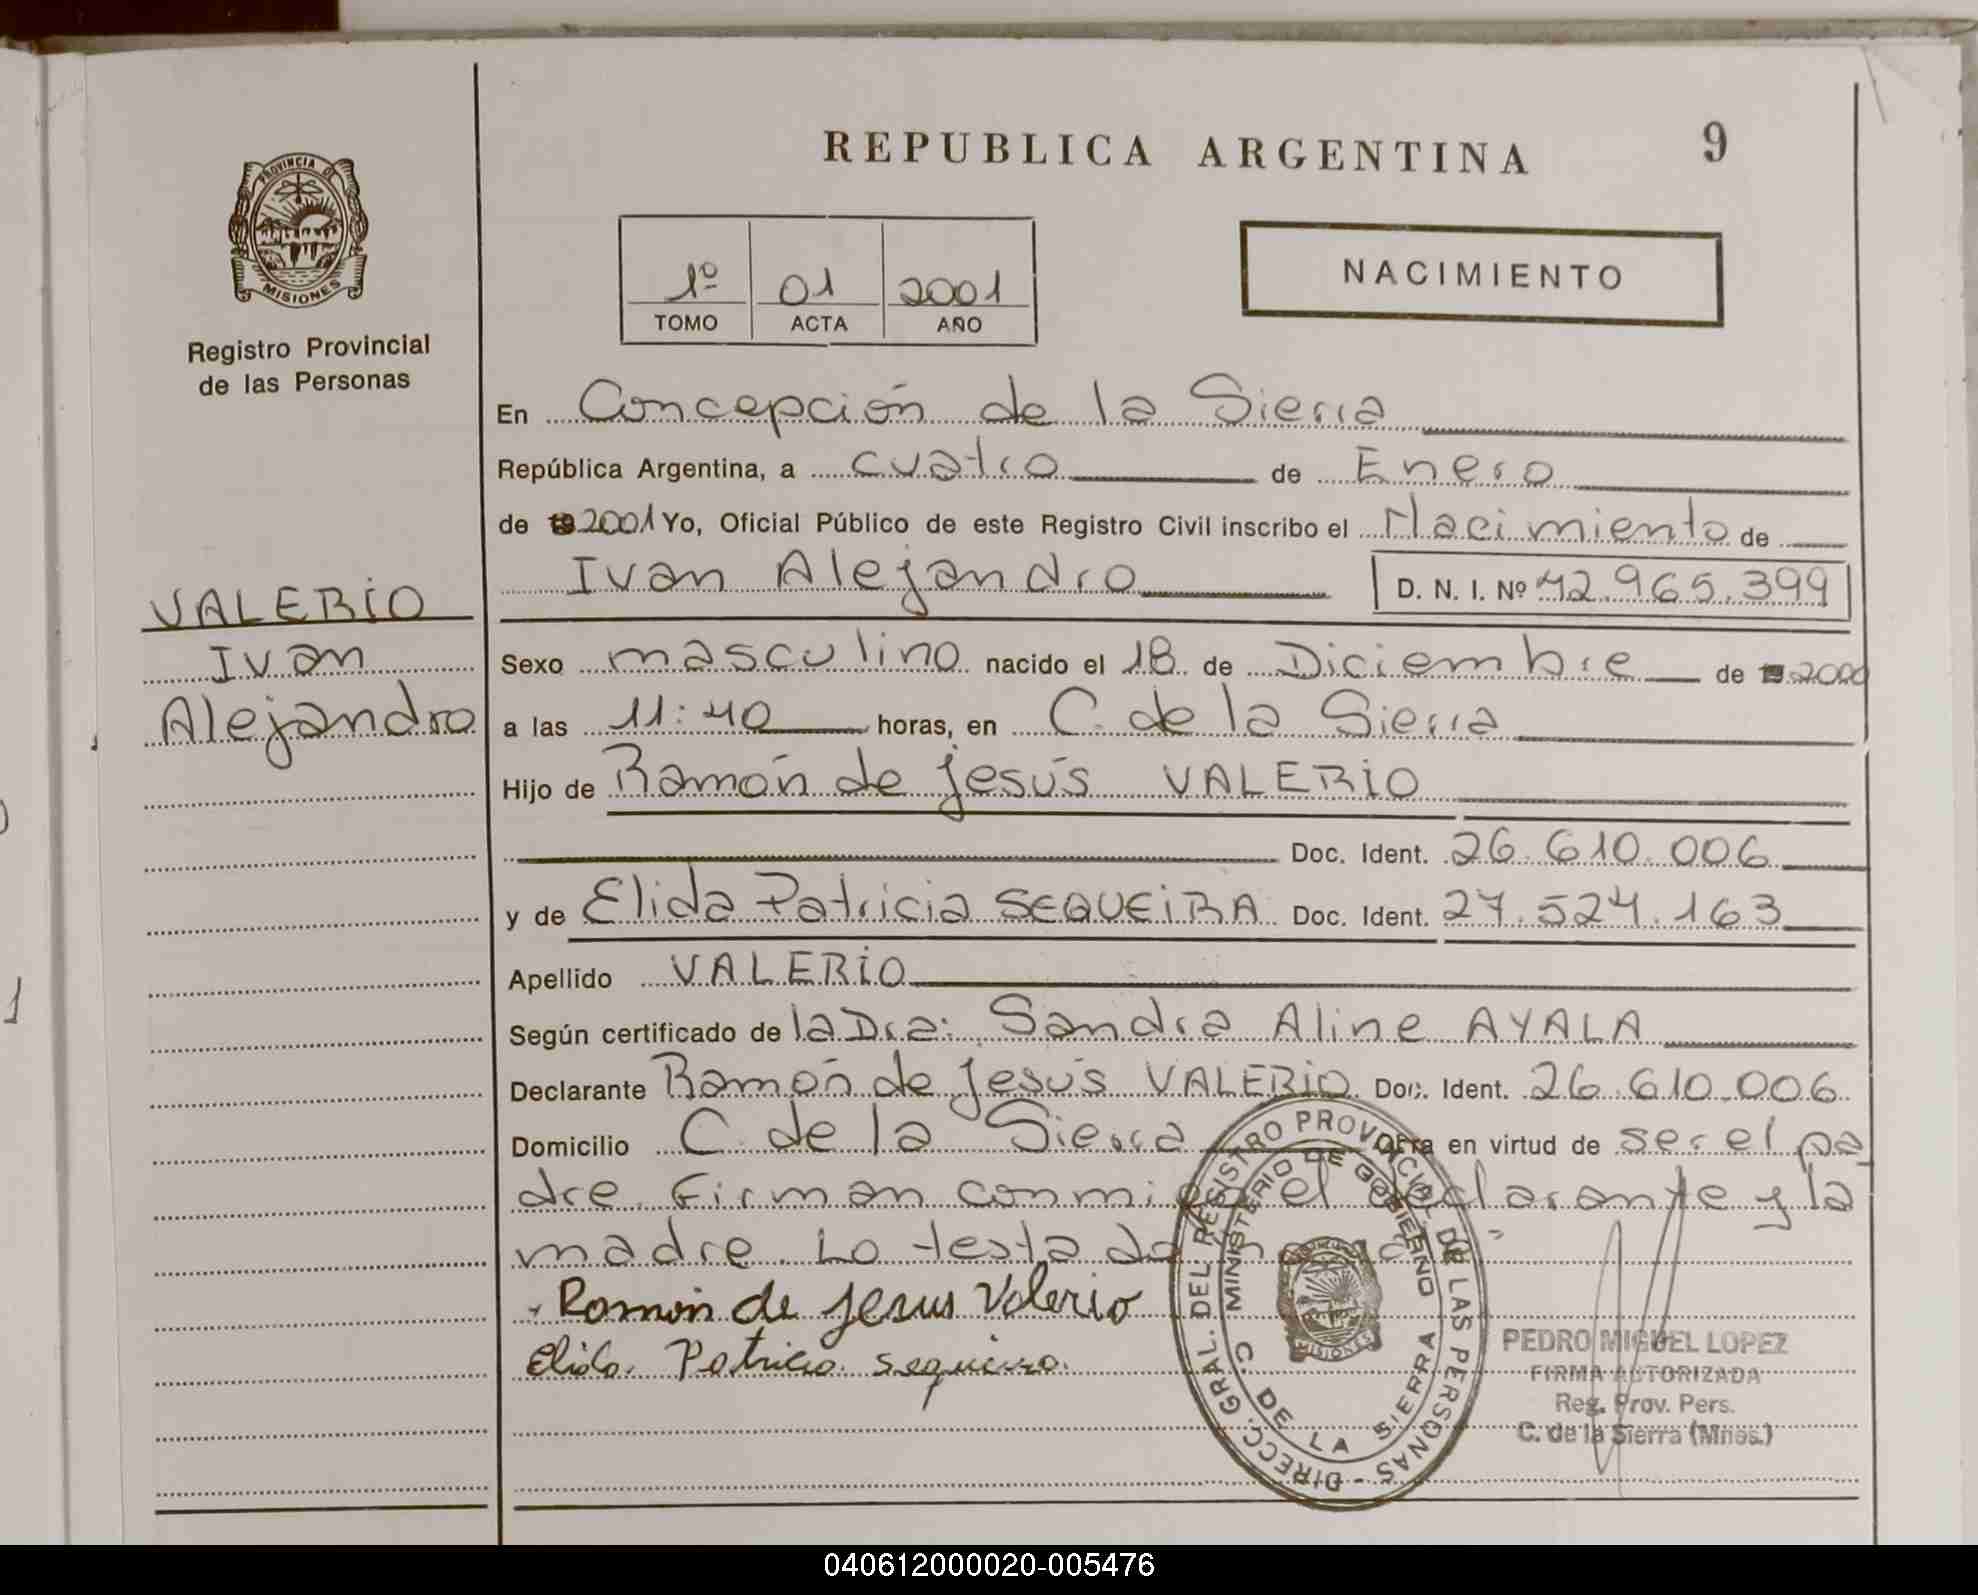 REPUBLICA ARGENTINA
9
PROVINCIA DE
MISIONES
Registro Provincial
de las Personas
1º 01 2001
TOMO ACTA AÑO
NACIMIENTO
En Concepción de la Sierra
República Argentina, a cuatro de Enero
de 19 2001 Yo, Oficial Público de este Registro Civil inscribo el Nacimiento de
Ivan Alejandro D. N. I. Nº 42.965.399
VALERIO
Ivan
Alejandro
Sexo masculino nacido el 18 de Diciembre de 19 2000
a las 11:40 horas, en C. de la Sierra
Hijo de Ramón de Jesús VALERIO
Doc. Ident. 26.610.006
y de Elida Patricia SEQUEIRA Doc. Ident. 27.524.163
Apellido VALERIO
Según certificado de la Dra: Sandra Aline AYALA
Declarante Ramón de Jesús VALERIO Doc. Ident. 26.610.006
Domicilio C. de la Sierra Obra en virtud de ser el pa
dre. Firman conmigo el declarante y la
madre. Lo testado
Ramón de Jesus Valerio
Elida Patricia Sequeira
DIRECC. GRAL. DEL REGISTRO PROVINCIAL DE LAS PERSONAS -
MINISTERIO DE GOBIERNO
C. DE LA SIERRA
MISIONES
PEDRO MIGUEL LOPEZ
FIRMA AUTORIZADA
Reg. Prov. Pers.
C. de la Sierra (Mnes.)
040612000020-005476